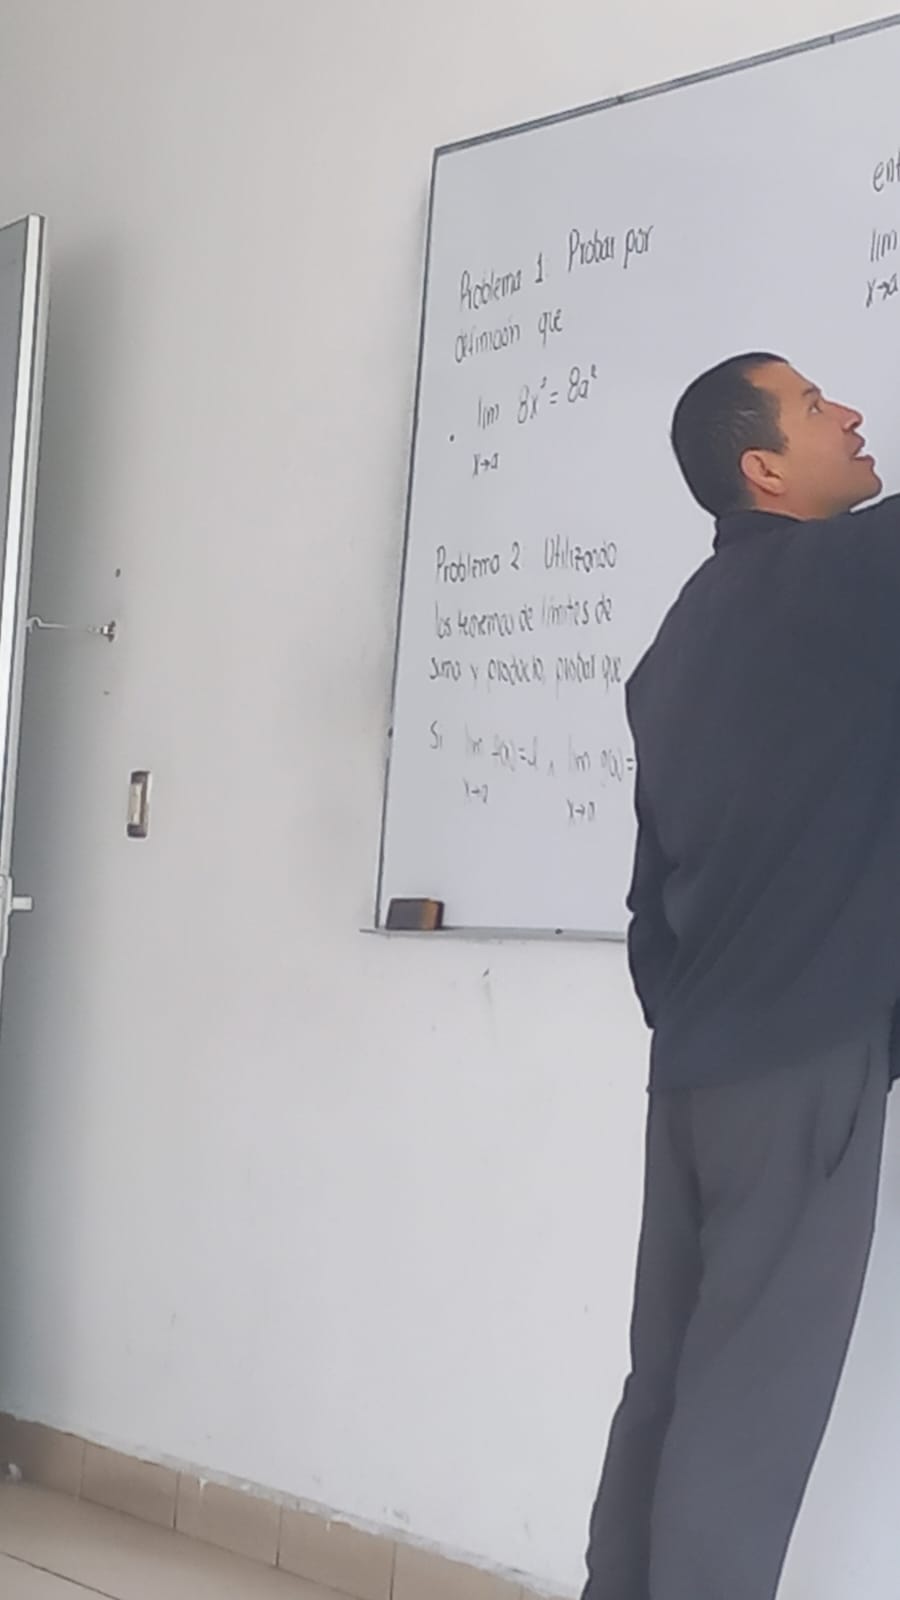 Problema 1: Probar por
definición que
lim 8x² = 8a²
x→a
Problema 2 Utilizando
los teoremas de límites de
suma y producto, probar que
Si lim f(x)=l ∧ lim g(x)=
x→a x→a
ent
lim
x→a